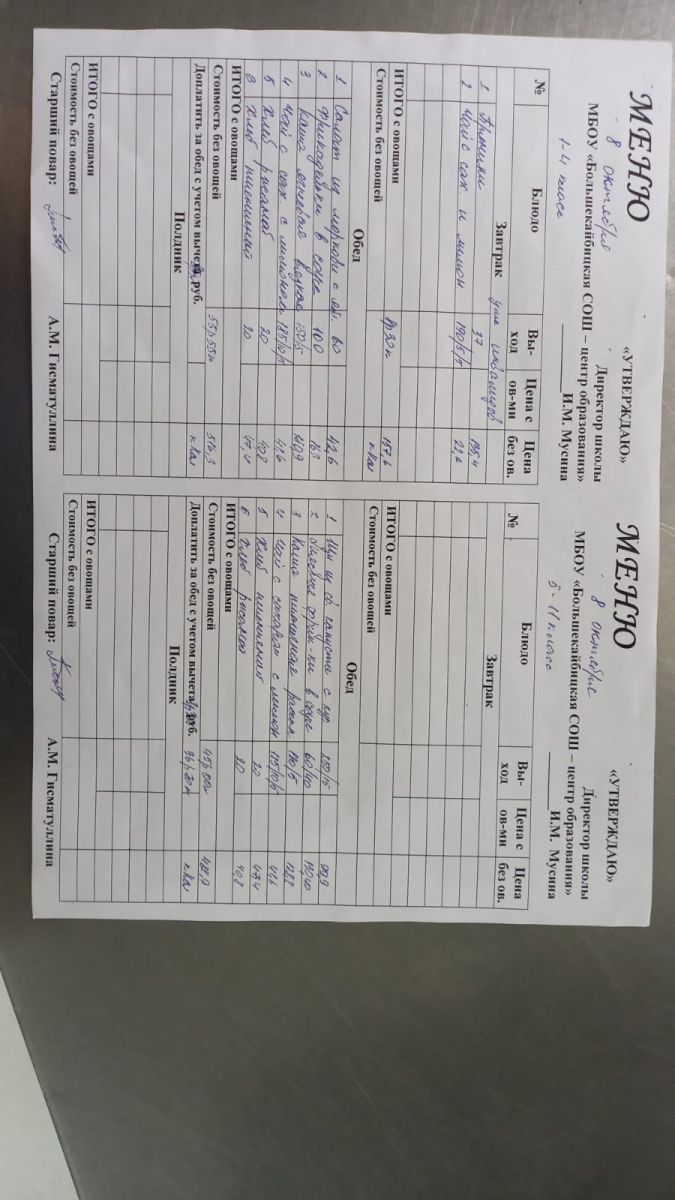 МЕНЮ
8 октября
«УТВЕРЖДАЮ»
Директор школы
МБОУ «Большекайбицкая СОШ – центр образования»
1-4 класс
И.М. Мусина
№ Блюдо Вы-ход Цена с ов-ми Цена без ов.
Завтрак
1 Пряники 37 135,4
2 Чай с сах и лимон 190/5/5 22,2
ИТОГО с овощами
Стоимость без овощей 157,6 кКал
Обед
1 Салат из моркови с яб. 60 42,6
2 Фрикадельки в соусе 100 163
3 Каша вязкая 150/5
4 Чай с сах. с лимоном 185/10/5 41,6
5 Хлеб ржаной 20 40,8
6 Хлеб пшеничный 20 47,4
ИТОГО с овощами
Стоимость без овощей
Доплатить за обед с учетом вычета, руб. кКал
Полдник
ИТОГО с овощами
Стоимость без овощей
Старший повар: А.М. Гисматуллина
МЕНЮ
8 октября
«УТВЕРЖДАЮ»
Директор школы
МБОУ «Большекайбицкая СОШ – центр образования»
5-11 класс
И.М. Мусина
№ Блюдо Вы-ход Цена с ов-ми Цена без ов.
Завтрак
ИТОГО с овощами
Стоимость без овощей
Обед
1 Щи из св капусты с кур 250/15 99,9
2 в соусе 60/40
3 Каша пшеничная
4 Чай с сахаром с лимон 185/10/5 41,6
5 Хлеб пшеничный 20 47,4
6 Хлеб ржаной 20 40,8
ИТОГО с овощами
Стоимость без овощей
Доплатить за обед с учетом вычета, руб. кКал
Полдник
ИТОГО с овощами
Стоимость без овощей
Старший повар: А.М. Гисматуллина